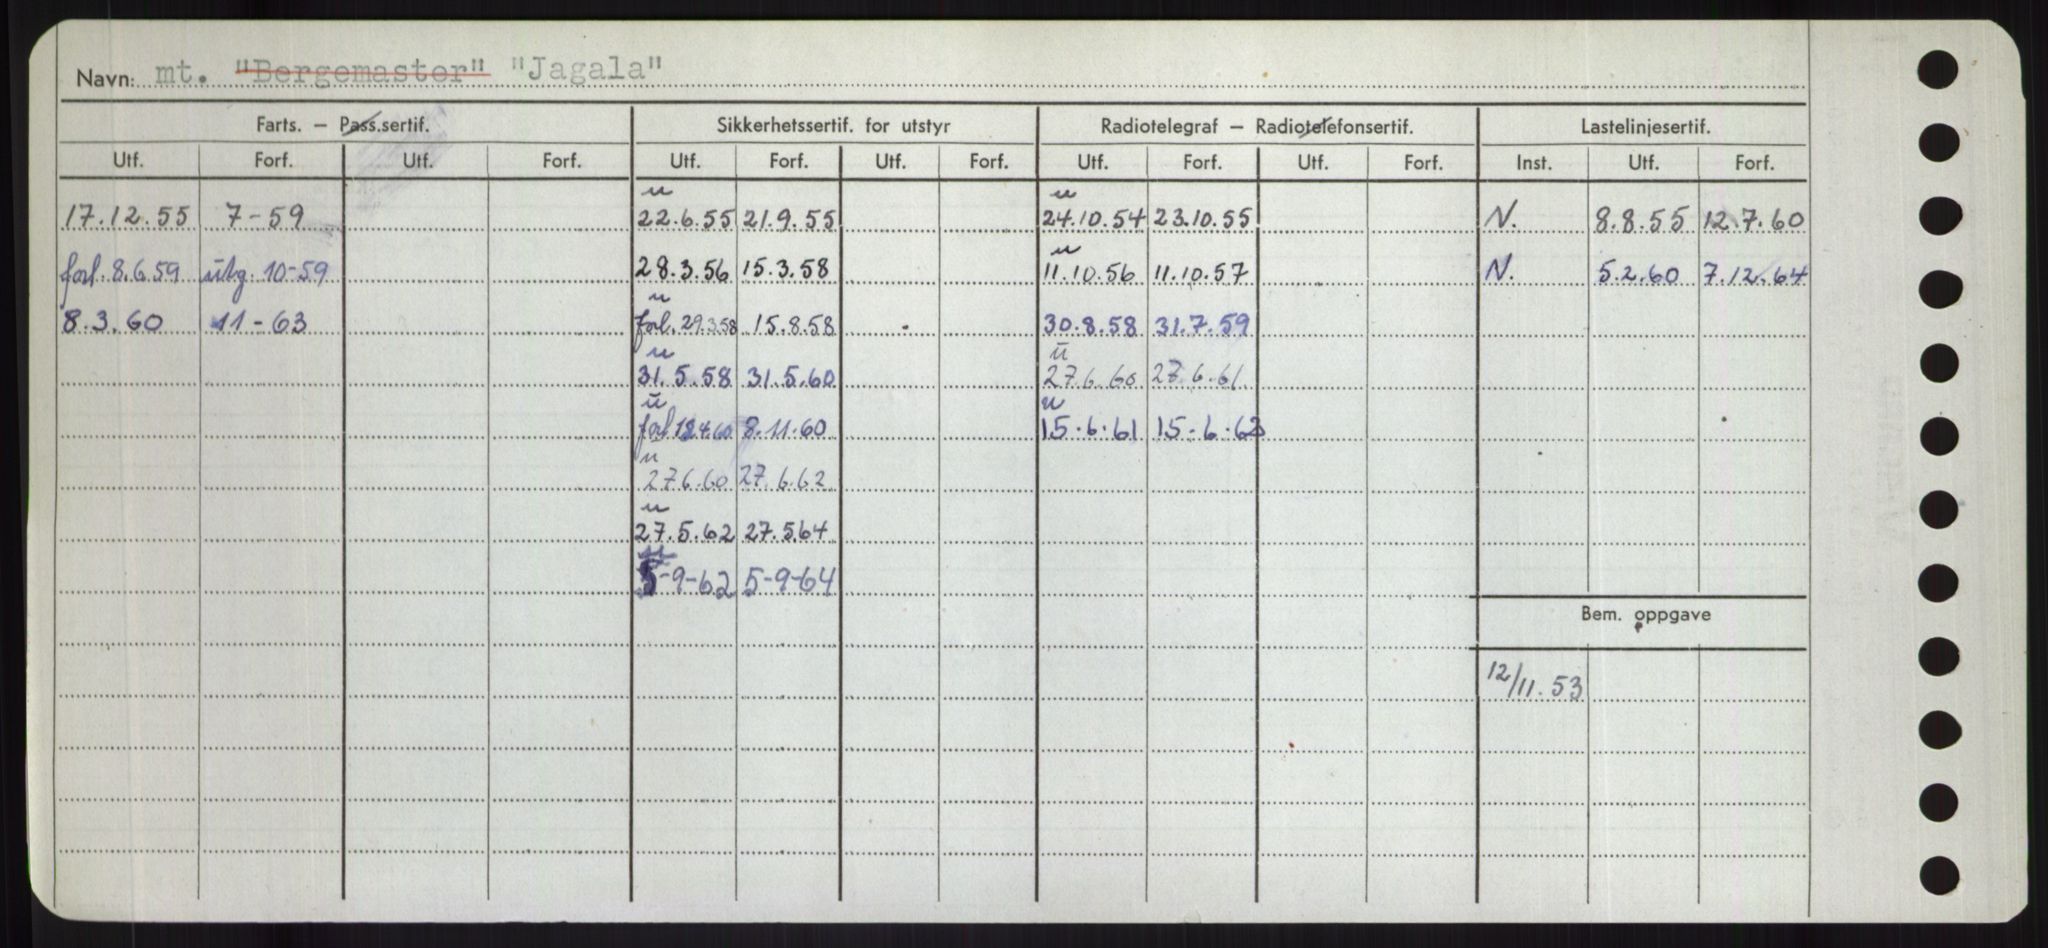 Navn: mt. "Bergemaster" "Jagala"
Farts. — Pass.sertif. Sikkerhetssertif. for utstyr Radiotelegraf — Radiotelefonsertif. Lastelinjesertif.
Utf. Forf. Utf. Forf. Utf. Forf. Utf. Forf. Utf. Forf. Utf. Forf. Inst. Utf. Forf.
u u
17.12.55 7-59 22.6.55 21.9.55 24.10.54 23.10.55 N. 8.8.55 12.7.60
u
forl. 8.6.59 utg. 10-59 28.3.56 15.3.58 11.10.56 11.10.57 N. 5.2.60 7.12.64
u
8.3.60 11-63 forl. 29.3.58 15.8.58 30.8.58 31.7.59
u ū
31.5.58 31.5.60 27.6.60 27.6.61
ū u
forl 18.4.60 8.11.60 15.6.61 15-6.62
u
27.6.60 27.6.62
u
27.5.62 27.5.64
u
5-9-62 5-9-64
Bem. oppgave
12/11.53